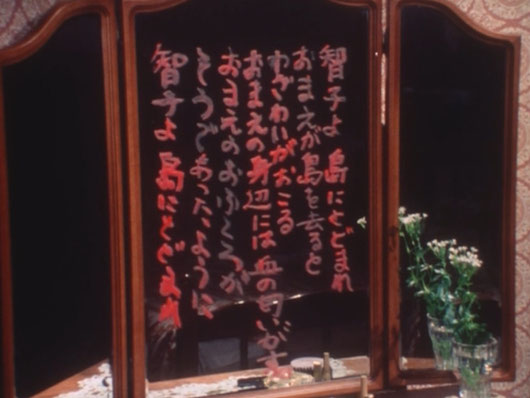 智子よ 島にとどまれ
おまえが島を去ると
わざわいがおこる
おまえの身辺には血の匂いが
おまえのおゆくろが
そうであったようは
智子よ 島にとどまれ